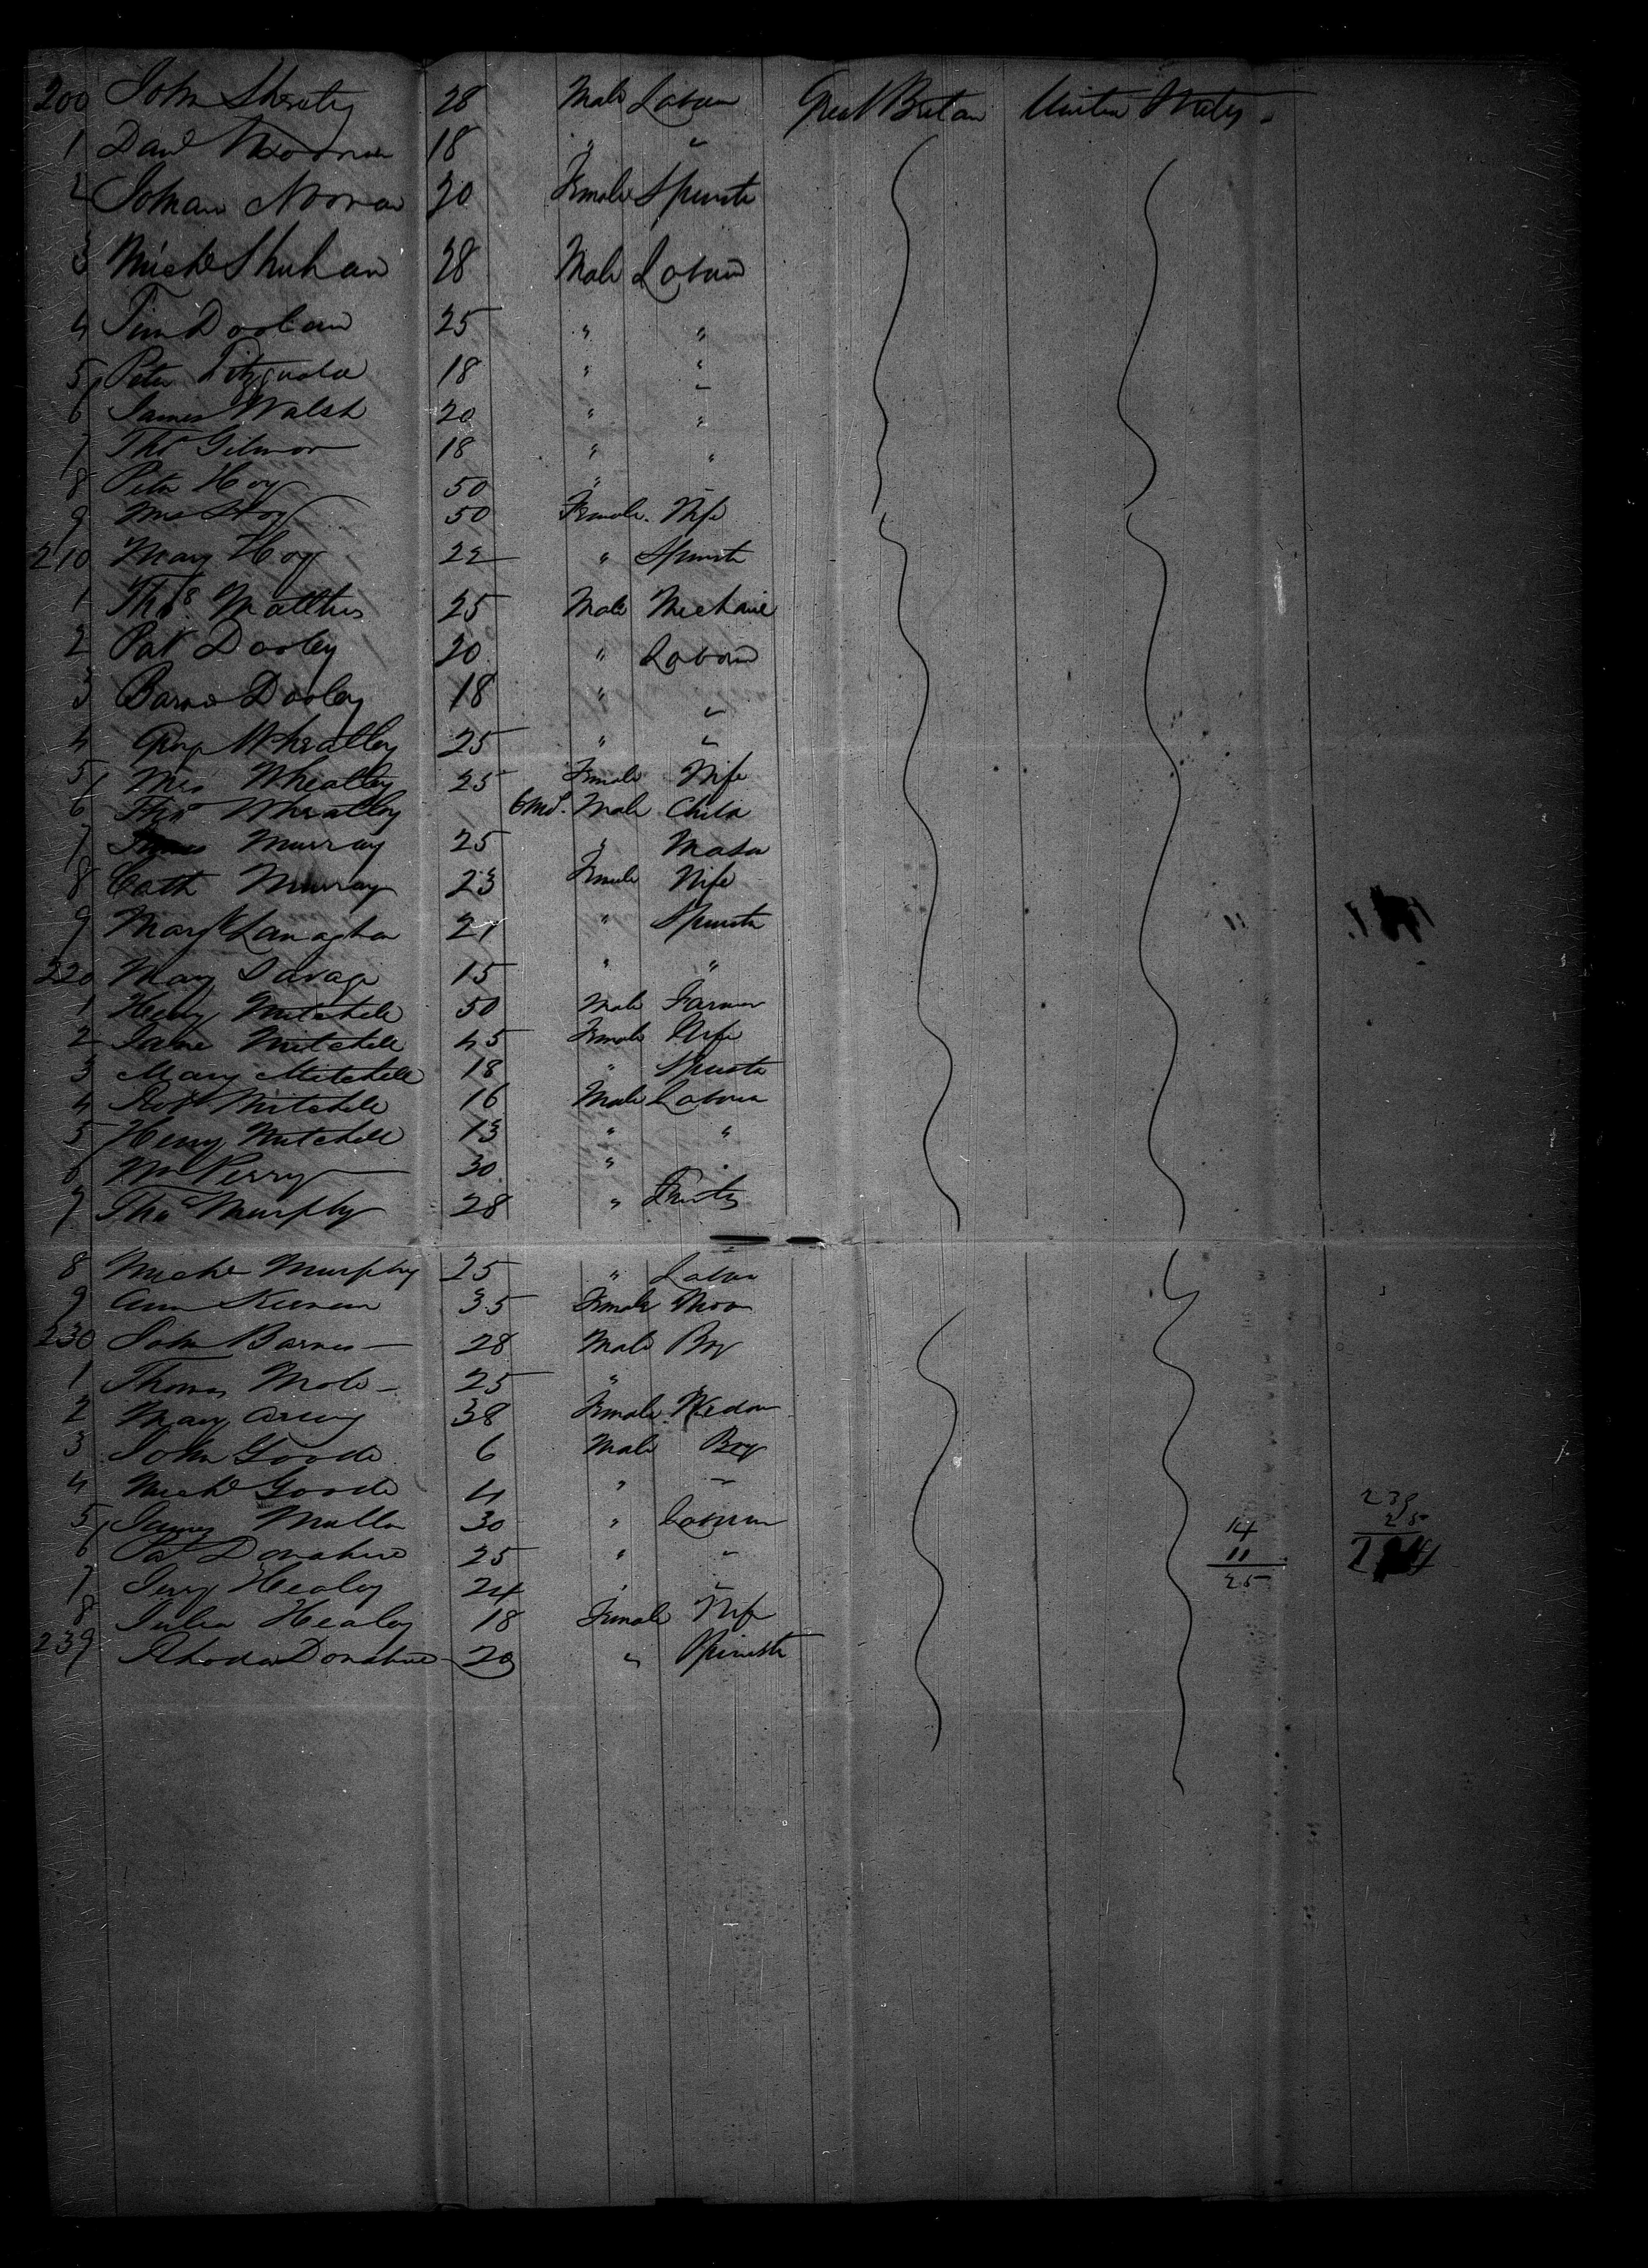 200 John 28 Male Labour Great Britan United States
1 Danl Noonan 18 " "
2 Johan Noonan 20 Female Spinste
3 Michl Shuhan 28 Male Labour
4 Tim Doolan 25 " "
5 Peter Fitzgerald 18 " "
6 James Walsh 20 " "
7 Thos Gilmor 18 " "
8 Peter Hoy 50 " "
9 Mrs Hoy 50 Female Wife
210 Mary Hoy 22 " Spinste
1 Thos Matthes 25 Male Mechanic
2 Pat Dooley 20 " Labour
3 Dooley 18 " "
4 Wheatley 25 " "
5 Mrs Wheatley 25 Female Wife
6 Thos Wheatley 6 Ms. Male Child
7 Murray 25 " Mason
8 Cath Murray 23 Female Wife
9 Margt Lanaghan 21 " Spinste
220 Mary Savage 15 " "
1 Henry Mitchell 50 Male Farmer
2 Jane Mitchell 45 Female Wife
3 Mary Mitchell 18 " Spinste
4 Robt Mitchell 16 Male Labour
5 Henry Mitchell 13 " "
6 Wm Perry 30 "
7 Thos Murphy 28 "
8 Michl Murphy 25 " Labour
9 Ann 35 Female
230 John Barnes 28 Male Boy
1 Thomas Mole 25 "
2 Mary 38 Female Widow
3 John Goode 6 Male Boy
4 Michl Goode 4 " "
5 James Mullen 30 " Labour
6 Pat Donahue 25 " "
7 Jerry Healey 24 " "
8 Julia Healey 18 Female Wife
239 Rhoda Donahue 20 " Spinste
11
14
11
25
239
25